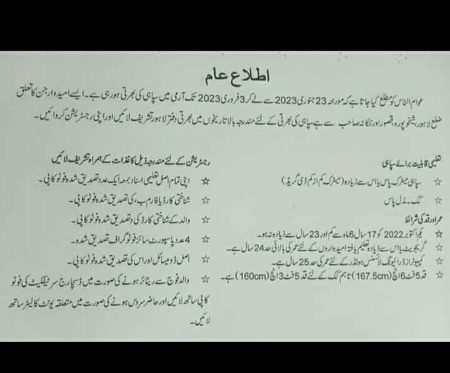 اطلاع عام
عوام الناس کو مطلع کیا جاتا ہے کہ مورخہ 23 جنوری 2023 سے لے کر 3 فروری 2023 تک آرمی میں سپاہی کی بھرتی ہو رہی ہے۔ ایسے امیدوار جن کا تعلق
ضلع لاہور، شیخوپورہ، قصور اور ننکانہ صاحب سے ہے سپاہی کی بھرتی کے لئے مندرجہ بالا تاریخوں میں بھرتی دفتر لاہور تشریف لائیں اور اپنی رجسٹریشن کروائیں۔
تعلیمی قابلیت برائے سپاہی
☆ سپاہی میٹرک پاس یا اس سے زیادہ (میٹرک کم از کم ڈی گریڈ)
☆ کک۔ مڈل پاس
عمر اور قد کی شرائط
☆ یکم اکتوبر 2022 کو 17 سال 6 ماہ سے کم اور 23 سال سے زیادہ نہ ہو۔
☆ گریجویٹ یا اس سے زیادہ تعلیم یافتہ امیدواروں کے لئے عمر کی بالائی حد 24 سال ہے۔
☆ کمپیوٹرائزڈ ڈرائیونگ لائسنس ہولڈرز کے لئے عمر کی حد 25 سال ہے۔
☆ قد 5 فٹ 6 انچ (167.5cm) تاہم کک کے لئے قد 5 فٹ 3 انچ (160cm) ہے۔
رجسٹریشن کے لئے مندرجہ ذیل کاغذات کے ہمراہ تشریف لائیں
☆ اپنی تمام اصل تعلیمی اسناد بمعہ ایک عدد تصدیق شدہ فوٹو کاپی۔
☆ شناختی کارڈ یا فارم ب، کی تصدیق شدہ فوٹو کاپی۔
☆ والد کے شناختی کارڈ کی تصدیق شدہ فوٹو کاپی۔
☆ 4 عدد پاسپورٹ سائز فوٹو گراف تصدیق شدہ۔
☆ اصل ڈومیسائل اور اس کی تصدیق شدہ فوٹو کاپی۔
☆ والد فوج سے ریٹائر ہونے کی صورت میں ڈسچارج سرٹیفکیٹ کی فوٹو
کاپی ساتھ لائیں اور حاضر سروس ہونے کی صورت میں متعلقہ یونٹ کا لیٹر ساتھ
لائیں۔